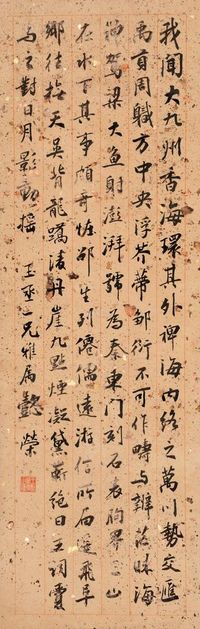 我聞大九州香海環其外裨海內絡之萬川勢交匯
禹貢周職方中央浮芥蒂鄒衍不可作疇與辨茫昧海
駕梁大魚射澎湃號為秦東門刻石表朐界三山
在水下其事頗奇怪鄙生列僊儒遠游信所屆遐飛早
鄉往捨天吳背龍蹻凌丹崖九點煙凝黛嶄絕日主祠賓
与不對日月影動搖 玉丞一兄雅屬 懿榮